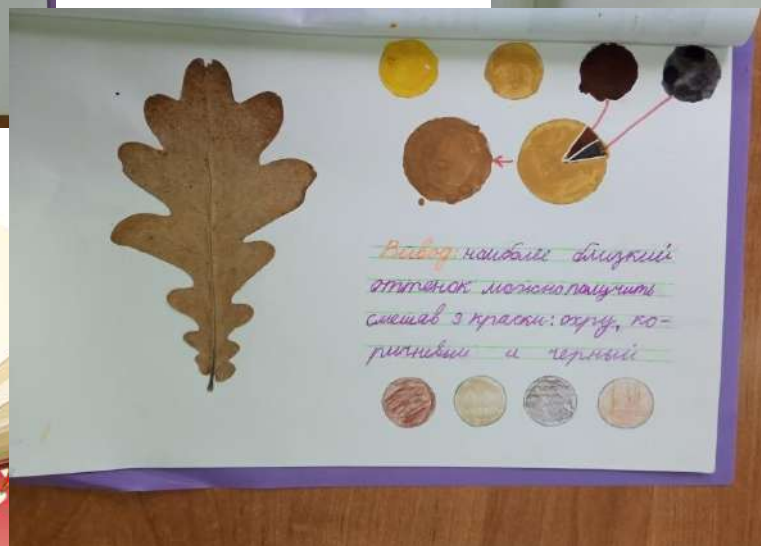 Вывод: наиболее близкий
оттенок можно получить
смешав 3 краски: охру, ко-
ричневый и черный